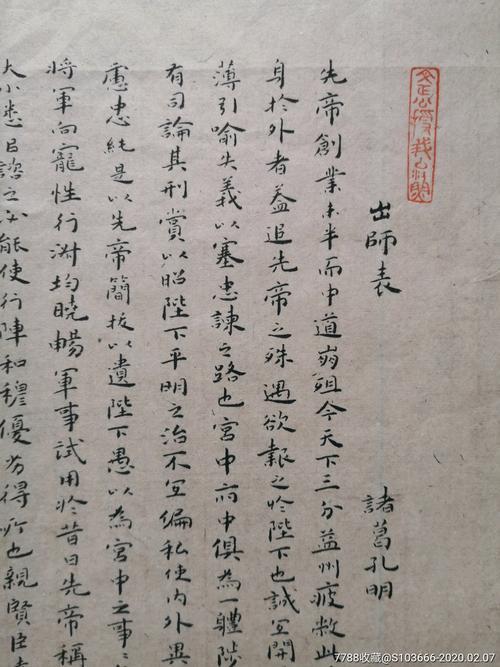 出師表
諸葛孔明
先帝創業未半而中道崩殂今天下三分益州疲敝此
身於外者蓋追先帝之殊遇欲報之於陛下也誠宜開
薄引喻失義以塞忠諫之路也宮中府中俱為一體陟
有司論其刑賞以昭陛下平明之治不宜偏私使內外異
慮忠純是以先帝簡拔以遺陛下愚以為宮中之事
將軍向寵性行淑均曉暢軍事試用於昔日先帝稱
大小悉以諮之必能使行陣和穆優劣得所也親賢臣
7788收藏@S103666-2020.02.07